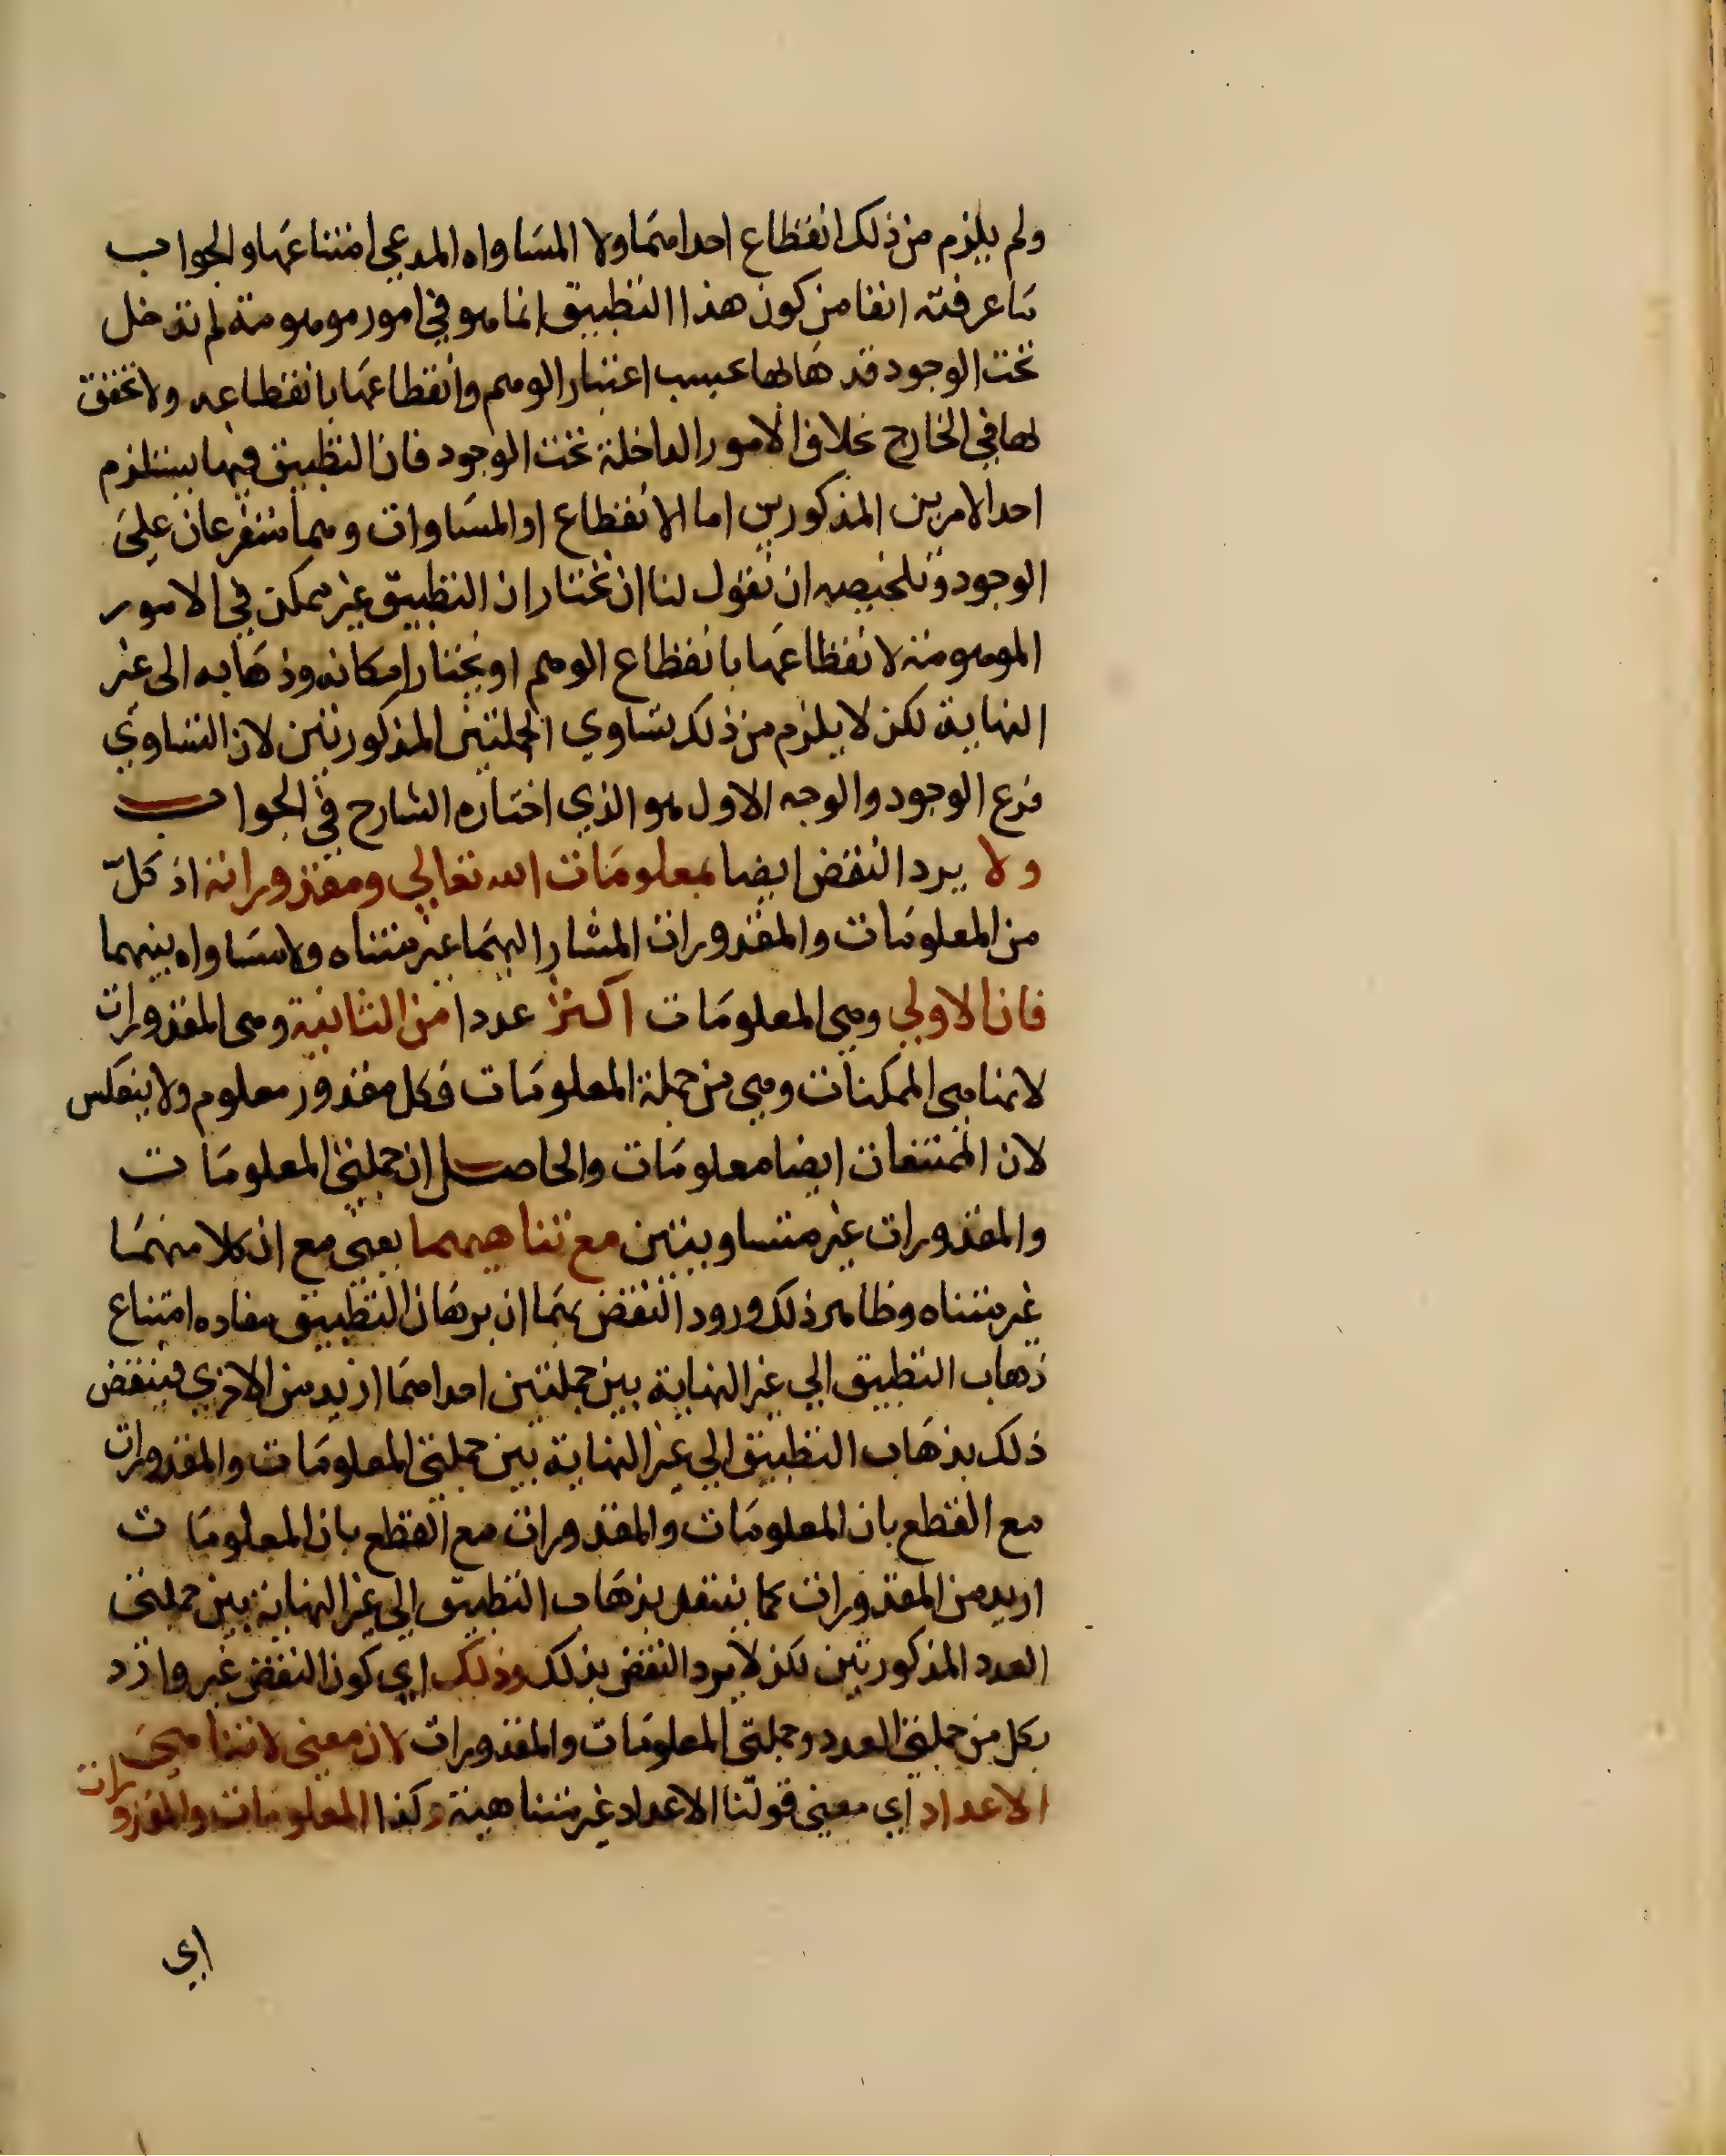 ولم يلزم من ذلك انقطاع احداهما ولا المساواه المدعي امتناعها والجواب
ما عرفته انفا من كون هذا التطبيق انما هو في امور موهومة لم تدخل
تحت الوجود فذهابها بحسب اعتبار الوهم وانقطاعها بانقطاعه ولا تحقق
لها في الخارج بخلاف الامور الداخلة تحت الوجود فان التطبيق فيها يستلزم
احد الامرين المذكورين اما الانقطاع او المساوات وهما متفرعان على
الوجود وتلخيصه ان نقول لنا ان نختار ان التطبيق غير ممكن في الامور
الموهومة لانقطاعها بانقطاع الوهم او نختار امكانه وذهابه الى غير
النهاية لكن لا يلزم من ذلك تساوي الجملتين المذكورتين لان التساوي
فرع الوجود والوجه الاول هو الذي اختاره الشارح في الجواب
ولا يرد النقض ايضا بمعلومات الله تعالي ومقدوراته اذ كل
من المعلومات والمقدورات المشار اليهما غير متناه ولا مساواه بينهما
فان الاولي وهي المعلومات اكثر عددا من الثانية وهي المقدورات
لانها هي الممكنات وهي من جملة المعلومات فكل مقدور معلوم ولا ينعكس
لان الممتنعات ايضا معلومات والحاصل ان جملتي المعلومات
والمقدورات غير متساويتين مع تناهيهما يعني مع ان كلا منهما
غير متناه وظاهر ذلك ورود النقض بهما ان برهان التطبيق مفاده امتناع
ذهاب التطبيق الي غير النهاية بين جملتين احداهما ازيد من الاخري فينتقض
ذلك بذهاب التطبيق الي غير النهاية بين جملتي المعلومات والمقدورات
مع القطع بان المعلومات والمقدورات مع القطع بان المعلومات
ازيد من المقدورات كما ينتقد بذهاب التطبيق الي غير النهاية بين جملتي
العدد المذكورتين لكن لا يرد النقض بذلك وذلك اي كون النقض غير وارد
بكل من جملتي العدد وجملتي المعلومات والمقدورات لان معني لا تناهي
الاعداد اي معني قولنا الاعداد غير متناهية وكذا المعلومات والمقدورات
اي